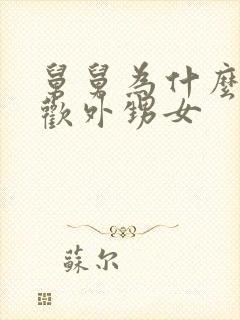 舅舅為什麼
歡外甥女
蘇尔